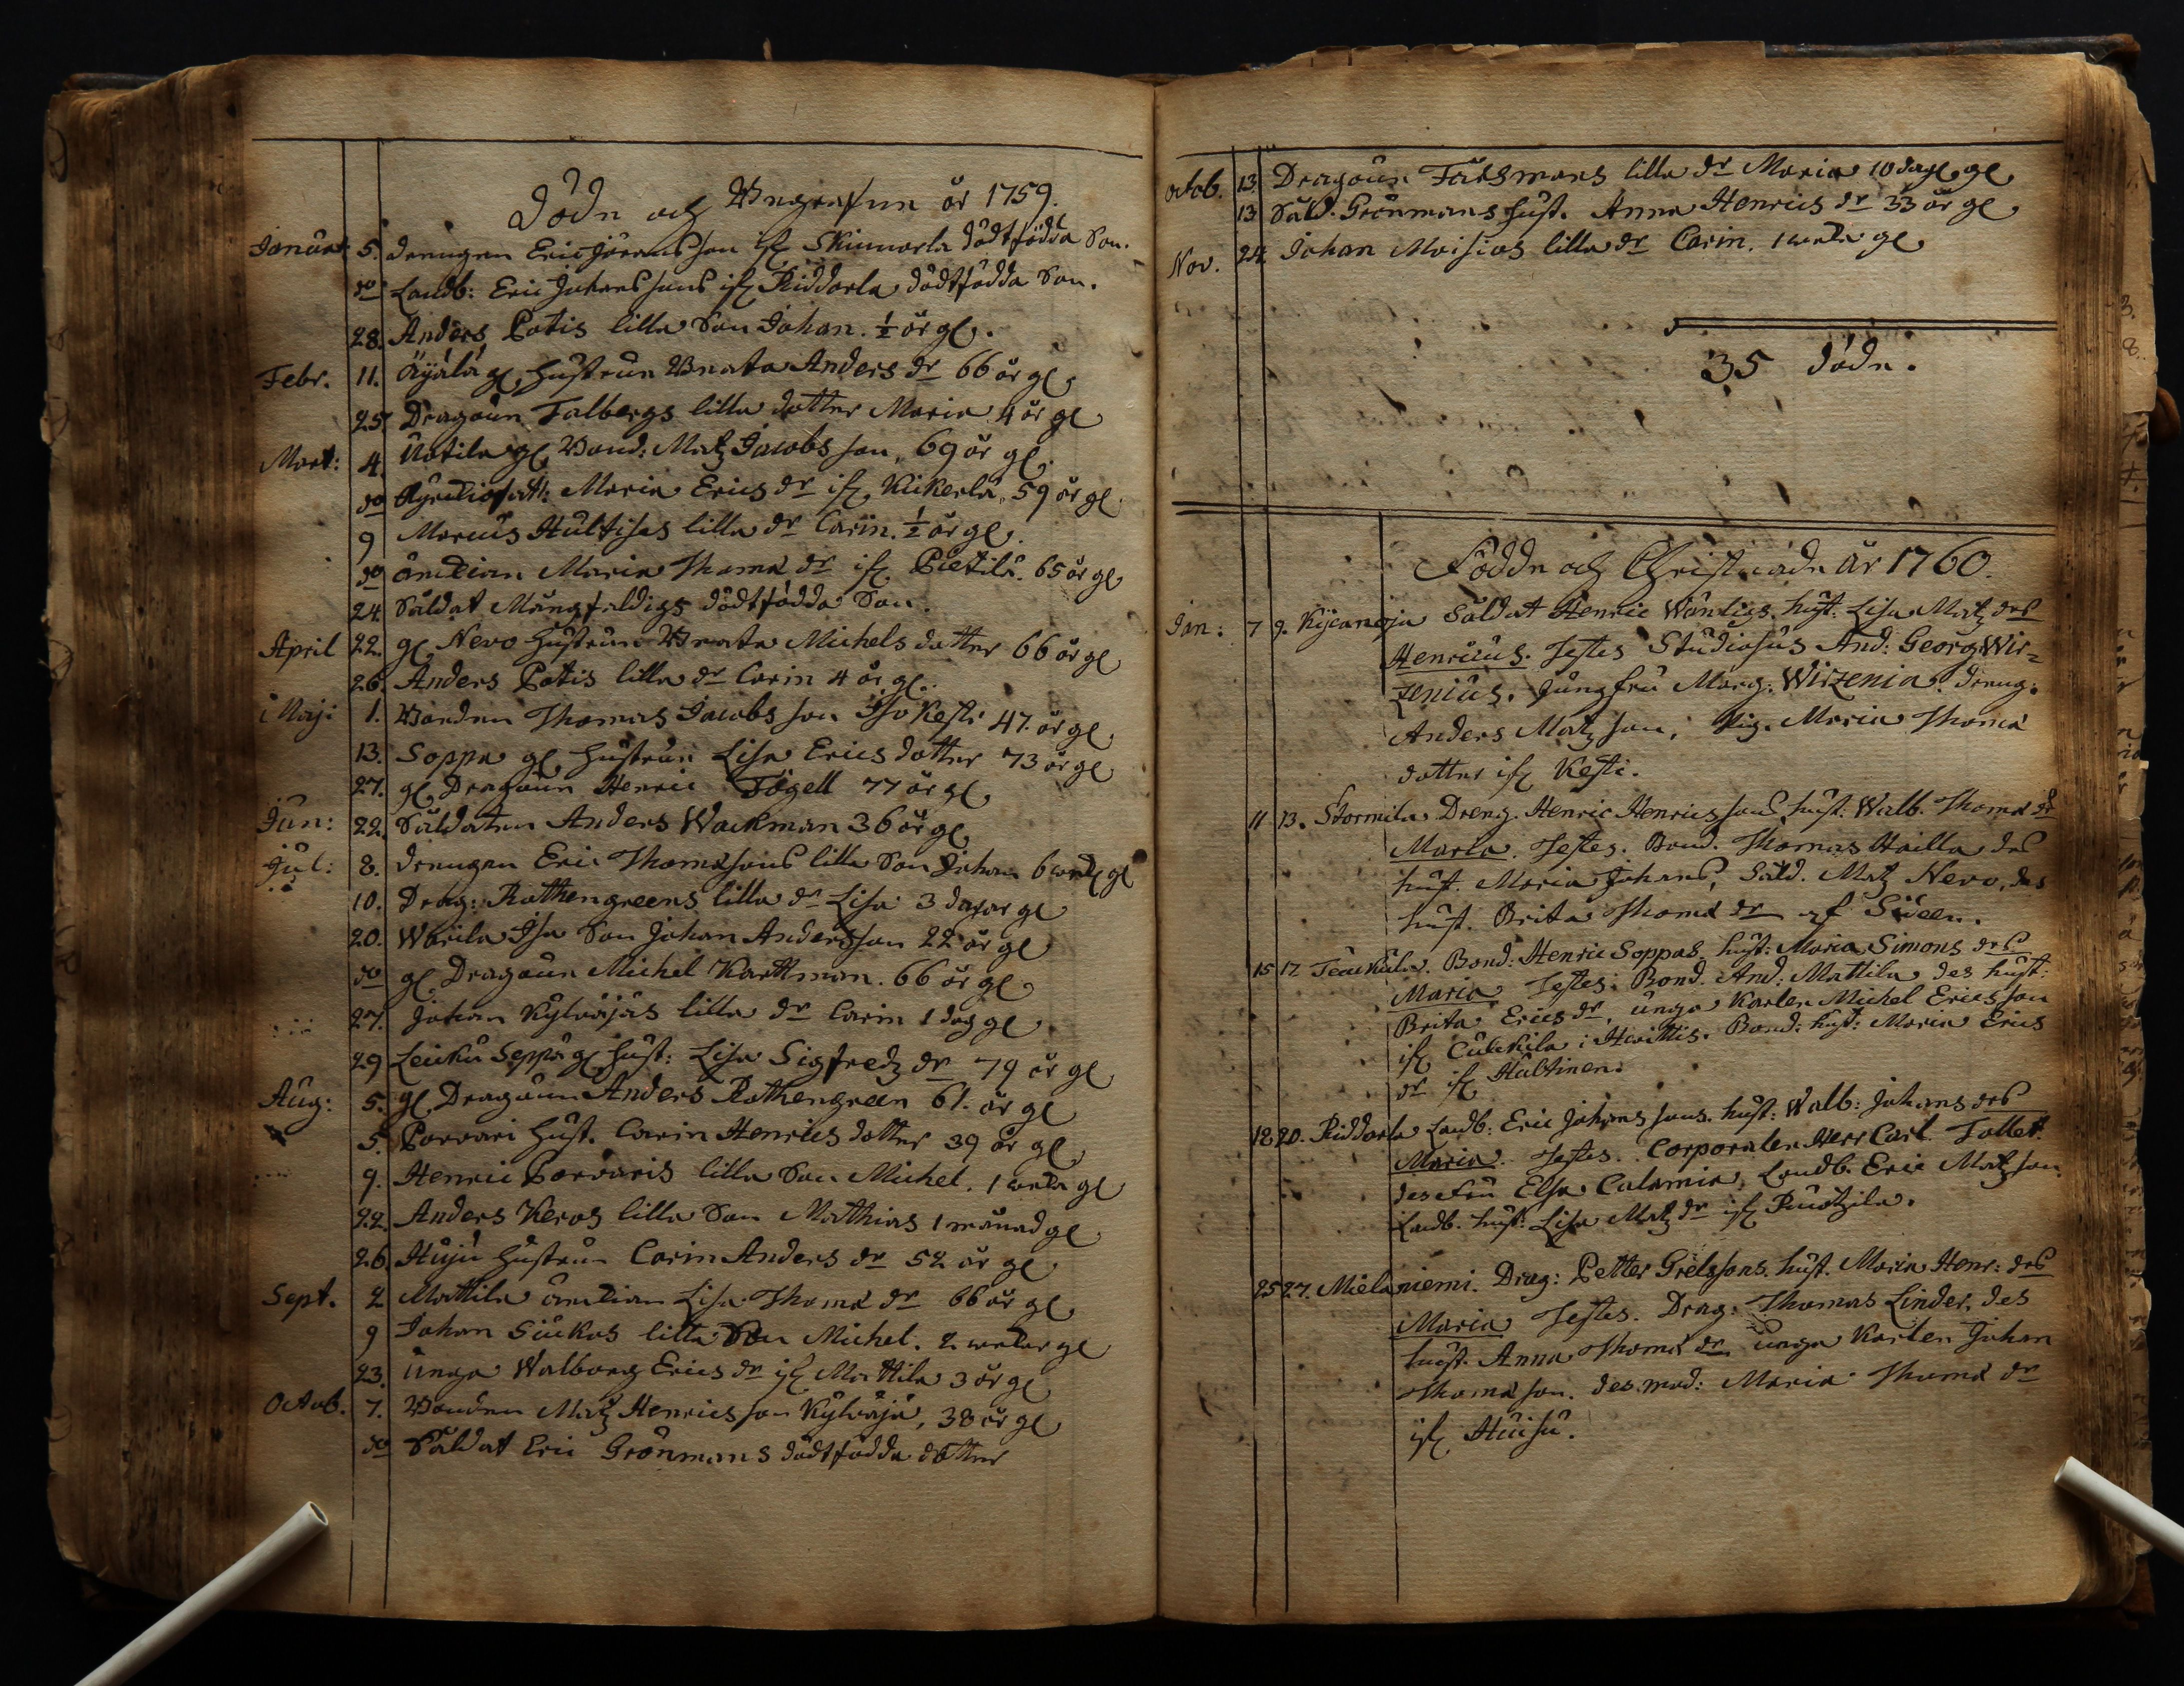 Döde och Begrafne år 1759.
Januar 5. drengen Eric Göransson ifr. Skinnarla dödfödda Son.
do Landb: Eric Johanssons ifr. Riddarla dödfödda Son.
28. Anders Potis lilla Son Johan. ½ år gl.
Febr. 11. Äÿälä gl. hustrun Beata Anders dr 66 år gl.
25. Dragoun Falbergs lilla dotter Maria 4 år gl
Mart: 4. Uotila gl. Bond: Matz Jacobsson, 69 år gl.
do Maria Erics dr ifr. Kikerlä, 59 år gl.
9 Marcus Hultisas lilla dr Carin. ½ år gl.
do änckian Maria Thomæ dr ifr. Pietilä. 65 år gl
24. Såldat Mångfaldigs dödfödda Son.
April 22. gl. Nevo hustrun Beata Michelsdotter 66 år gl
26. Anders Potis lilla dr Carin 4 år gl.
Maji 1. Bonden Thomas Jacobsson Iso Kesti 47. år gl.
13. Soppa gl. hustrun Lisa Ericsdotter 73 år gl
27. gl. Dragoun Henric Fögell 77 år gl.
Jun: 22. Såldaten Anders Wackman 36 år gl.
Jul: 8. drengen Eric Thomæsons lilla Son Johan 6 weck. gl
10. Drag: Rothengreens lilla dr Lisa 3 dagar gl
20. Warila Isa Son Johan Andersson 22 år gl
do gl. Dragoun Michel Karttman. 66 år gl
27. Johan Kylväjäs lilla dr Carin 1 dag gl
29 Leicku Seppä gl. hust: Lisa Sigfredz dr 79 år gl
Aug: 5. gl. Dragoun Anders Rothengreen 61. år gl
5. Porvari hust. Carin Henricsdotter 39 år gl
9. Henric Porvaris lilla Son Michel. 1 wecka gl
22. Anders Keros lilla Son Mathias 1 månad gl
26. Huju hustrun Carin Anders dr 52 år gl
Sept. 2 Mattila änckian Lisa Thomæ dr 66 år gl
9 Johan Siukos lilla Son Michel. 2 weckor gl
23. unga Walborg Erics dr ifr. Mattila 3 år gl
Octob. 7. Bonden Matz Henricsson Kylväjä, 38 år gl
do Såldat Eric Grönmans dödfödda dotter
octob. 13. Dragoun Färsmans lilla dr Maria 10 dag. gl
13 Såld. Grönmans hust. Anna Henrics dr 33 år gl
Nov. 24. Johan Moisios lilla dr Carin. 1 wecka gl
35 döde.
Födde och Christnade År 1760.
Jan: 7 9. Kÿcanoja Såldat Henric Wänligs. hust: Lisa Matz drs
Henricus. Testes Studiosus And: Georg Wir=
zenius. Jungfru Marg: Wirzenia. dreng.
Anders Matzson, Pig. Maria Thomæ
dotter ifr. Kesti.
11 13. Stormila Dreng. Henric Henricssons hust: Walb. Thomæ drs
Maria. Testes. Bond. Thomas Hailla des
hust. Maria Johans, Såld. Matz Nevo, des
hust. Brita Thomæ dr
15 17. Teuckula. Bond: Henric Soppas. hust: Maria Simons drs
Maria Testes: Bond. And: Mattila des hust:
Brita Erics dr, unga Karlen Michel Ericsson
ifr. Cuckila i Hvittis. Bond: hust: Maria Erics
dr ifr. Hultinen.
18 20. Riddarla Landb: Eric Johanssons. hust: Walb: Johans drs
Maria. Testes. Corporalen Herr Carl Toller.
des Fru Elsa Calamia, Landb. Eric Matzson.
Landb. hust: Lisa Matz dr ifr. Puotzila.
25 27. Mielaniemi. Drag: Petter Grelssons. hust. Maria Henr: drs
Maria Testes. Drag: Thomas Linder, des
hust. Anna Thomæ dr unga Karlen Johan
Thomæson. des mod: Maria Thomæ dr
ifr. Huisu.